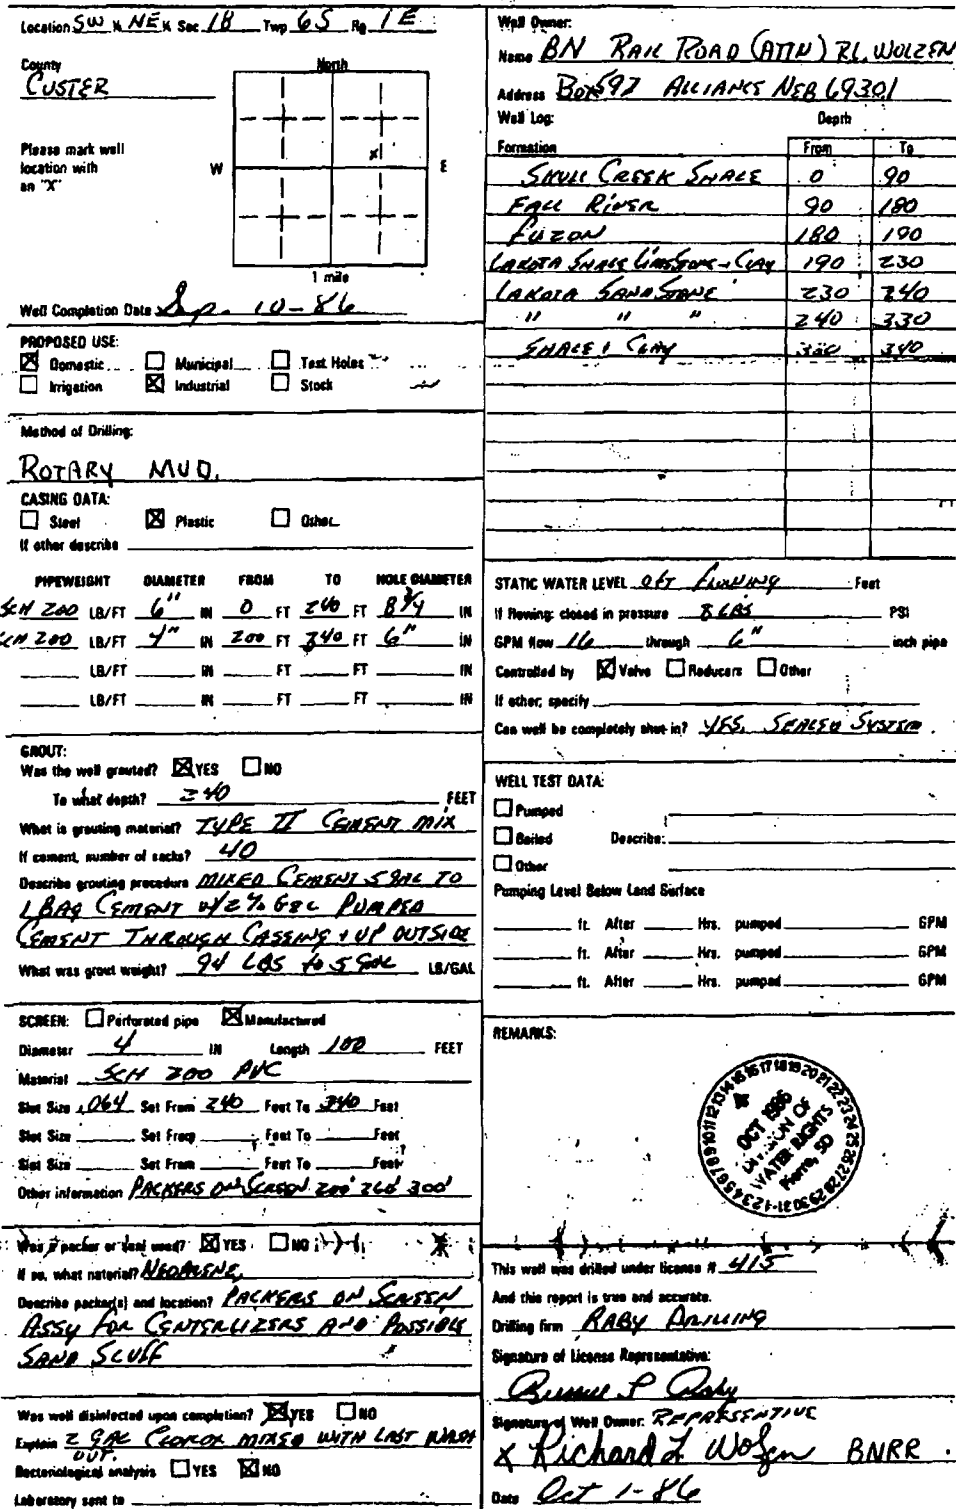 Location SW ¼ NE ¼ Sec 18 Twp 6S Rg 1E
County
CUSTER
North
Please mark well
location with
an "X"
W
X
E
1 mile
Well Completion Date Sep. 10-86
PROPOSED USE:
☒ Domestic ☐ Municipal ☐ Test Holes
☐ Irrigation ☒ Industrial ☐ Stock
Method of Drilling:
ROTARY MUD.
CASING DATA:
☐ Steel ☒ Plastic ☐ Other
If other describe
PIPEWEIGHT DIAMETER FROM TO HOLE DIAMETER
SCH 200 LB/FT 6" IN 0 FT 240 FT 8 3/4 IN
SCH 200 LB/FT 4" IN 200 FT 340 FT 6" IN
LB/FT IN FT FT IN
LB/FT IN FT FT IN
GROUT:
Was the well grouted? ☒ YES ☐ NO
To what depth? 240 FEET
What is grouting material? TYPE II CEMENT MIX
If cement, number of sacks? 40
Describe grouting procedure MIXED CEMENT 5 GAL TO
1 BAG CEMENT W/2% GEL PUMPED
CEMENT THROUGH CASSING + UP OUTSIDE
What was grout weight? 94 LBS to 5 GAL LB/GAL
SCREEN: ☐ Perforated pipe ☒ Manufactured
Diameter 4 IN Length 100 FEET
Material SCH 200 PVC
Slot Size .064 Set From 240 Feet To 340 Feet
Slot Size Set From Feet To Feet
Slot Size Set From Feet To Feet
Other information PACKERS ON SCREEN 200' 260' 300'
Was a packer or seal used? ☒ YES ☐ NO
If so, what material? NEOPRENE
Describe packer(s) and location? PACKERS ON SCREEN
ASSY FOR CENTERLIZERS AND POSSIBLE
SAND SLUFF
Was well disinfected upon completion? ☒ YES ☐ NO
Explain 2 GAL CLOROX MIXED WITH LAST WASH
OUT.
Bacteriological analysis ☐ YES ☒ NO
Laboratory sent to
Well Owner:
Name BN RAIL ROAD (ATTN) R.L. WOLZEN
Address Box 597 ALLIANCE NEB 69301
Well Log: Depth
Formation From To
SKULL CREEK SHALE 0 90
FALL RIVER 90 180
FUZON 180 190
LAKOTA SHALE LIMSTONE + CLAY 190 230
LAKOTA SANDSTONE 230 240
" " " 240 330
SHALE + CLAY 330 340
STATIC WATER LEVEL 0 FT FLOWING Feet
If flowing: closed in pressure 8 LBS PSI
GPM flow 16 through 6" inch pipe
Controlled by ☒ Valve ☐ Reducers ☐ Other
If other, specify
Can well be completely shut-in? YES, SEALED SYSTEM.
WELL TEST DATA:
☐ Pumped
☐ Bailed Describe:
☐ Other
Pumping Level Below Land Surface
ft. After Hrs. pumped GPM
ft. After Hrs. pumped GPM
ft. After Hrs. pumped GPM
REMARKS:
1 2 3 4 5 6 7 8 9 10 11 12 13 14 15 16 17 18 19 20 21 22 23 24 25 26 27 28 29 30 31
OCT 1986
DIVISION OF
WATER RIGHTS
Pierre, SD
This well was drilled under license # 415
And this report is true and accurate.
Drilling firm RABY DRILLING
Signature of License Representative:
Signature of Well Owner: REPRESENTIVE
X Richard L Wolzen BNRR.
Date Oct 1-86